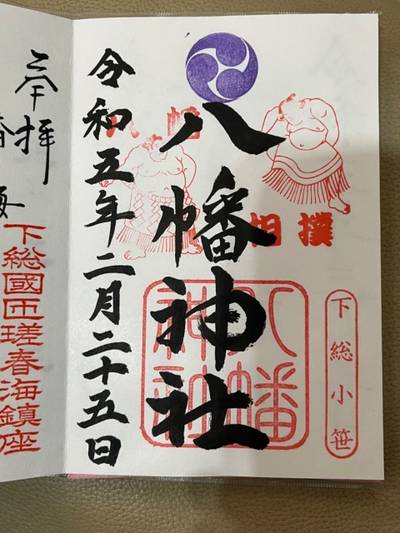 下総小笹
八幡
相撲
八幡神社
八幡
神社
令和五年二月二十五日
奉拝
下総國匝瑳春海鎮座